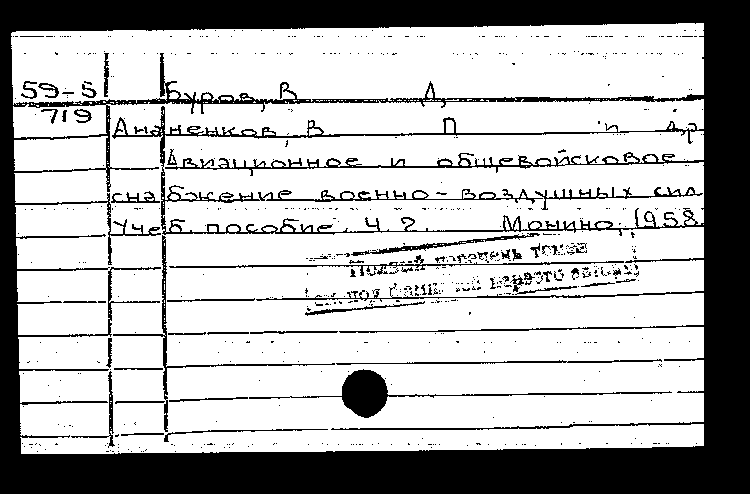 59-5 Буров, В Д,
719
Ананенков, В П и др
Авиационное и общевойсковое
снабжение военно-воздушных сил
Учеб. пособие. Ч 2. Монино, 1958
Полный перечень томов
см. под фамилией первого автора